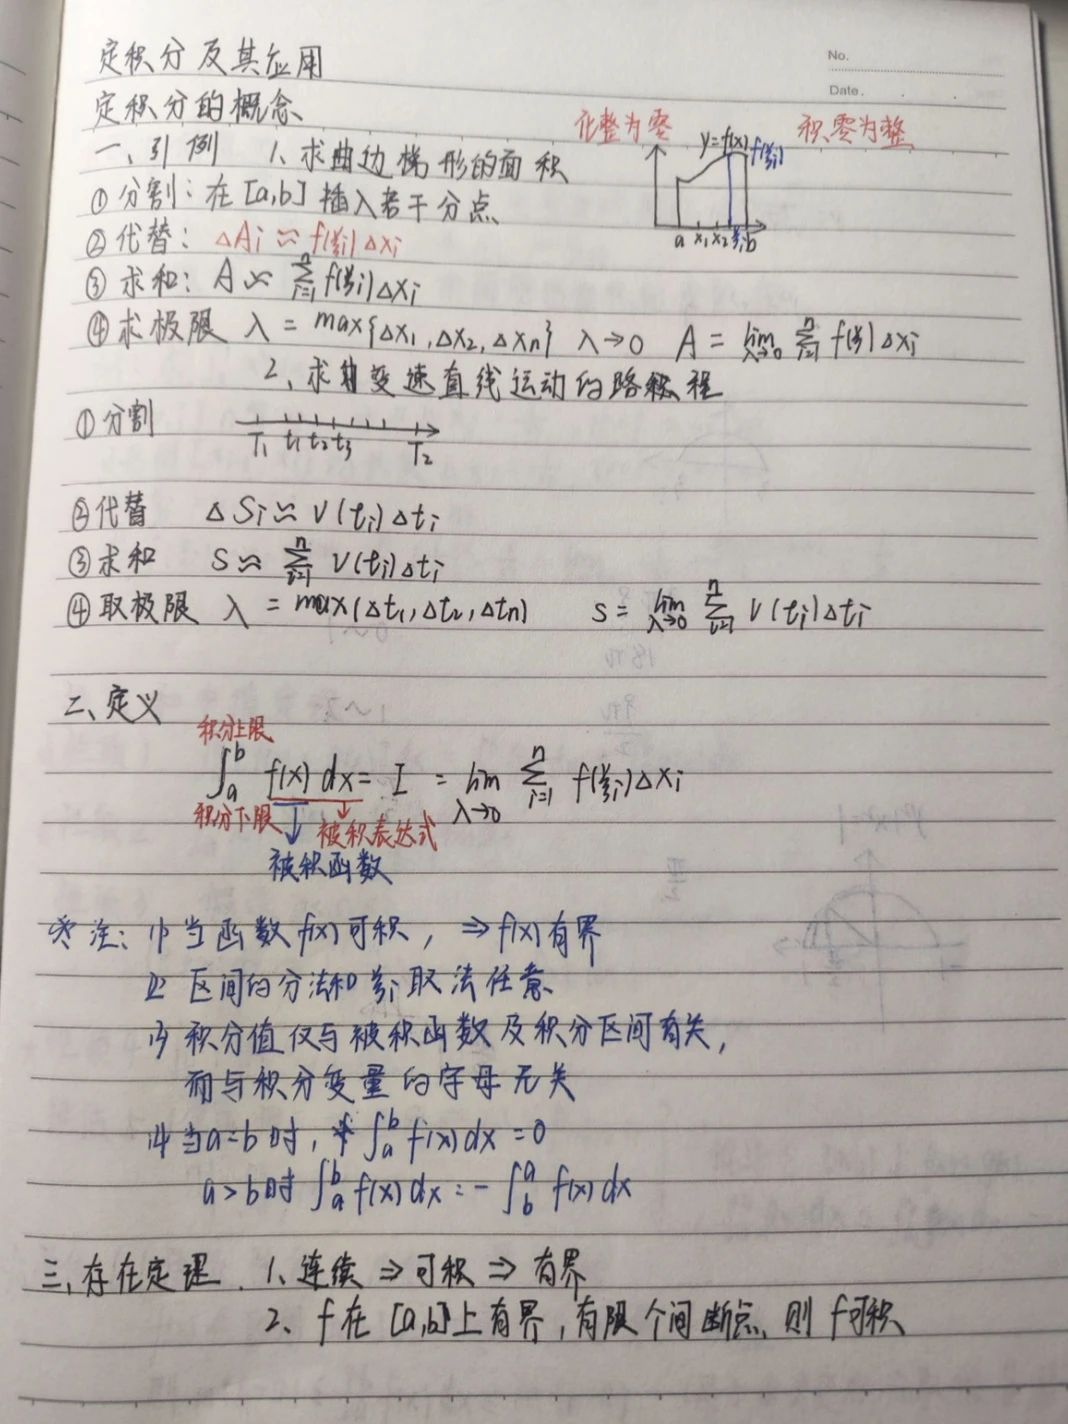 No.
Date.
定积分及其应用
定积分的概念
化整为零 积零为整
一、引例 1、求曲边梯形的面积
y=f(x) f(ξi)
a x₁ x₂ ξi b
①分割：在[a,b]插入若干分点
②代替：△Ai≈f(ξi)△xi
③求和：A≈∑ⁿᵢ₌₁f(ξi)△xi
④求极限 λ=max{△x₁,△x₂,△xn} λ→0 A=lim λ→0 ∑ⁿᵢ₌₁ f(ξ)△xi
2、求变速直线运动的路程
①分割
T₁ t₁ t₂ t₃ T₂
②代替 △Si≈v(ti)△ti
③求和 S≈∑ⁿᵢ₌₁ v(ti)△ti
④取极限 λ=max(△t₁,△t₂,△tn) S=lim λ→0 ∑ⁿᵢ₌₁ v(ti)△ti
二、定义
积分上限
∫ₐᵇ f(x)dx=I=lim λ→0 ∑ⁿᵢ₌₁ f(ξi)△xi
积分下限 被积表达式
被积函数
注：(1)当函数f(x)可积，⇒f(x)有界
(2)区间的分法和ξi取法任意
(3)积分值仅与被积函数及积分区间有关，
而与积分变量的字母无关
(4)当a=b时，∫ₐᵇ f(x)dx=0
a>b时∫ₐᵇ f(x)dx=-∫ᵇᵃ f(x)dx
三、存在定理 1、连续⇒可积⇒有界
2、f在[a,b]上有界，有限个间断点、则f可积